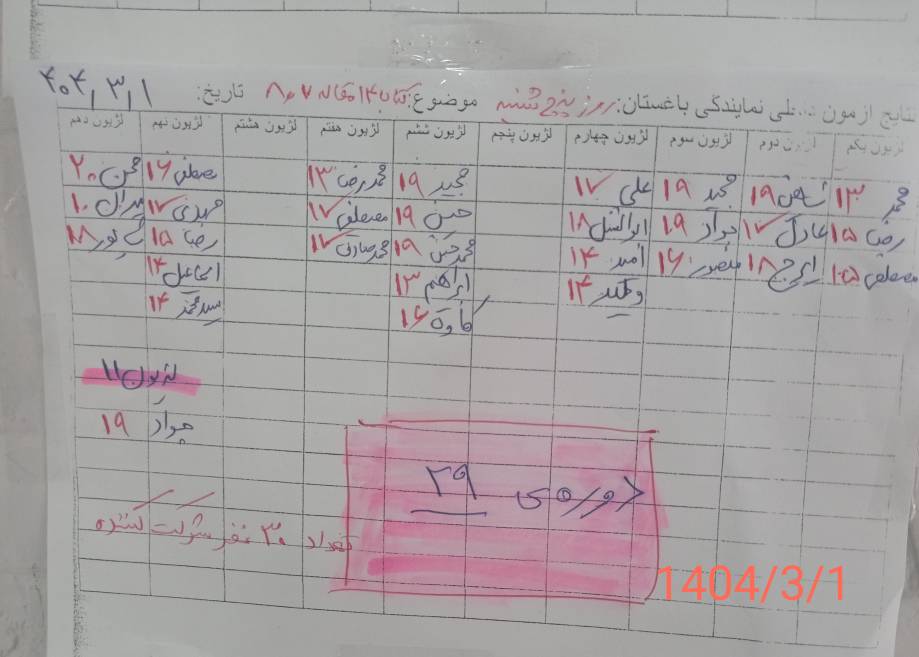 نتایج آزمون داخلی نمایندگی باغستان: روز پنج شنبه موضوع: کتاب ۱۴ مقاله ۸،۷ تاریخ: ۴۰۴،۳،۱
لژیون یکم لژیون دوم لژیون سوم لژیون چهارم لژیون پنجم لژیون ششم لژیون هفتم لژیون هشتم لژیون نهم لژیون دهم
محمد ۱۳ ۱۹ مجید ۱۹ علی ۱۷ مجید ۱۹ محمدرضا ۱۳ مصطفی ۱۶ محسن ۲۰
رضا ۱۵ عادل ۱۷ جواد ۱۹ ابوالفضل ۱۸ حسن ۱۹ مصطفی ۱۷ مهدی ۱۷ ۱۰
مصطفی ۱۰.۵ ایرج ۱۸ منصور ۱۶ امیر ۱۴ محمدحسن ۱۹ محمدصادق ۱۷ رضا ۱۵ ۱۸
وحید ۱۴ ابراهیم ۱۳ اسماعیل ۱۴
کاوه ۱۶ سیدمحمد ۱۴
لژیون ۱۱
جواد ۱۹
دوره‌ی ۲۹
تعداد ۳۰ نفر شرکت کننده
1404/3/1